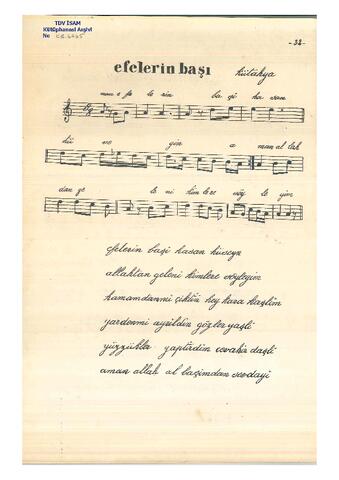 TDV İSAM
Kütüphanesi Arşivi
No
- 32 -
efelerin başı
Kütahya
le rin ba şi ha san
hü se yin a man al lah
dan ge le ni kim lere söy le yim
efelerin başi hasan hüseyn
allahtan geleni kimlere söyleyin
hamamdanmi çiktin hey kara kaşlim
yardenmi ayrildin gözler yaşli
yüzükler yaptirdim cevahir daşli
aman allah al başimdan sevdayi